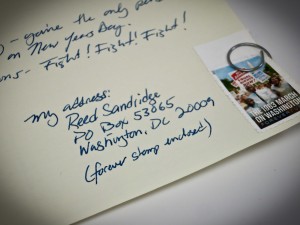 ) - you're the only person
on New Years Day.
- Fight! Fight! Fight!
my address:
Reed Sandridge
PO Box 53065
Washington, DC 20009
(forever stamp enclosed)
MARCH
ON WASHINGTON